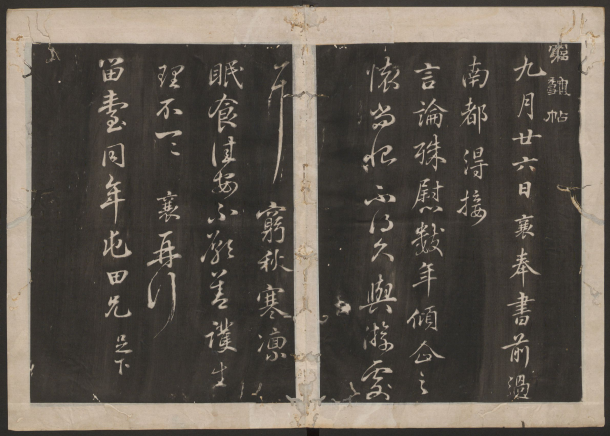 帖
九月廿六日襄奉書前過
南都得接
言論殊慰數年傾企之
懷尚恨不得久與游處
耳 窮秋寒凛
眠食佳安不願善護生
理不一一 襄再拜
留臺同年屯田兄足下